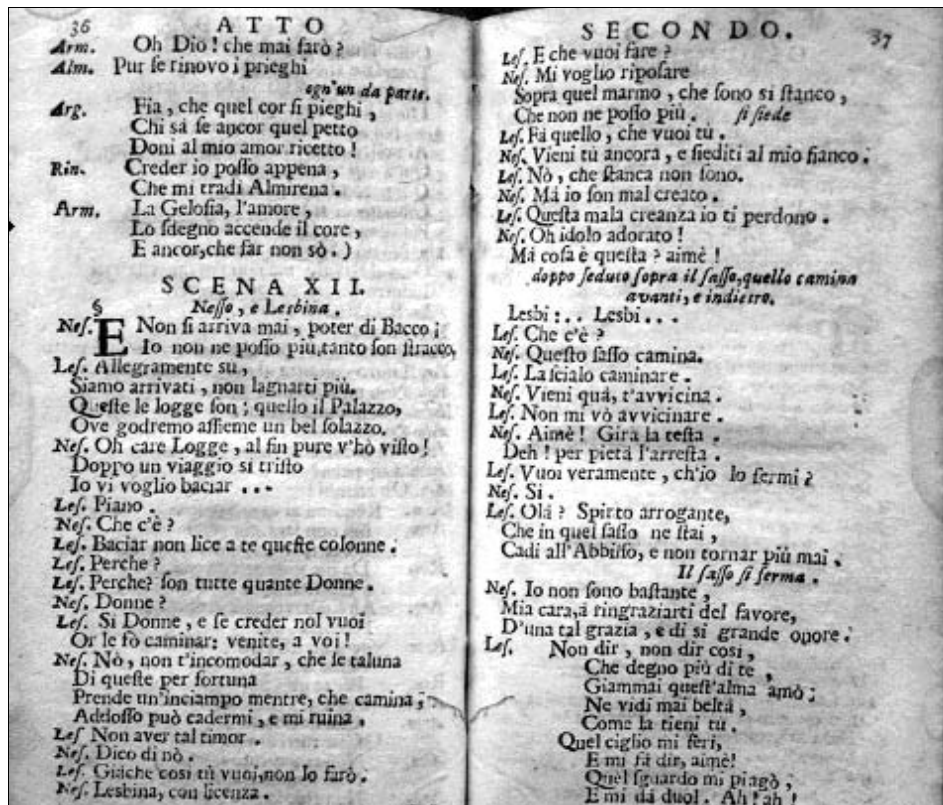 36 ATTO
Arm. Oh Dio ! che mai farò ?
Alm. Pur se rinovo i prieghi
ogn'un da parte.
Arg. Fia , che quel cor si pieghi ,
Chi sá se ancor quel petto
Doni al mio amor ricetto !
Rin. Creder io posso appena ,
Che mi tradi Almirena .
Arm. La Gelosia, l'amore ,
Lo sdegno accende il core ,
E ancor,che far non sò . )
SCENA XII.
§ Nesso , e Lesbina .
Nes. E Non si arriva mai , poter di Bacco ;
Io non ne posso piu,tanto son stracco,
Les. Allegramente su ,
Siamo arrivati , non lagnarti più.
Queste le logge son ; quello il Palazzo,
Ove godremo assieme un bel solazzo.
Nes. Oh care Logge , al fin pure v'hò visto !
Doppo un viaggio si tristo
Io vi voglio baciar ...
Les. Piano .
Nes. Che c'è ?
Les. Baciar non lice a te queste colonne .
Les. Perche ?
Les. Perche? son tutte quante Donne .
Nes. Donne ?
Les. Si Donne , e se creder nol vuoi
Or le fò caminar: venite, a voi !
Nes. Nò , non t'incomodar , che se taluna
Di queste per fortuna
Prende un'inciampo mentre, che camina ;
Addosso può cadermi , e mi ruina ,
Les Non aver tal timor .
Nes. Dico di nò .
Les. Giache cosi tù vuoi,non lo farò .
Nes. Lesbina, con licenza .
SECONDO. 37
Les. E che vuoi fare ?
Nes. Mi voglio riposare
Sopra quel marmo , che sono si stanco ,
Che non ne posso più . si siede
Les. Fá quello , che vuoi tu .
Nes. Vieni tù ancora , e siediti al mio fianco .
Les. Nò , che stanca non sono.
Nes. Má io son mal creato .
Les. Questa mala creanza io ti perdono .
Nes. Oh idolo adorato !
Má cosa è questa ? aimè !
doppo seduto sopra il sasso,quello camina
avanti, e indietro.
Lesbi : . . Lesbi . . .
Les. Che c'è ?
Nes. Questo sasso camina.
Les. Lascialo caminare .
Nes. Vieni quá, t'avvicina .
Les. Non mi vò avvicinare .
Nes. Aimè ! Gira la testa .
Deh ! per pietá l'arresta .
Les. Vuoi veramente , ch'io lo fermi ?
Nes. Si .
Les. Olá ? Spirto arrogante,
Che in quel sasso ne stai ,
Cadi all'Abbisso, e non tornar più mai .
Il sasso si ferma .
Nes. Io non sono bastante ,
Mia cara,á ringraziarti del favore,
D'una tal grazia , e di si grande onore .
Les. Non dir , non dir cosi ,
Che degno più di te ,
Giammai quest'alma amò ;
Ne vidi mai beltá ,
Come la tieni tu .
Quel ciglio mi ferì,
E mi fá dir, aimè!
Quel sguardo mi piagò ,
E mi dá duol . Ah ! ah !